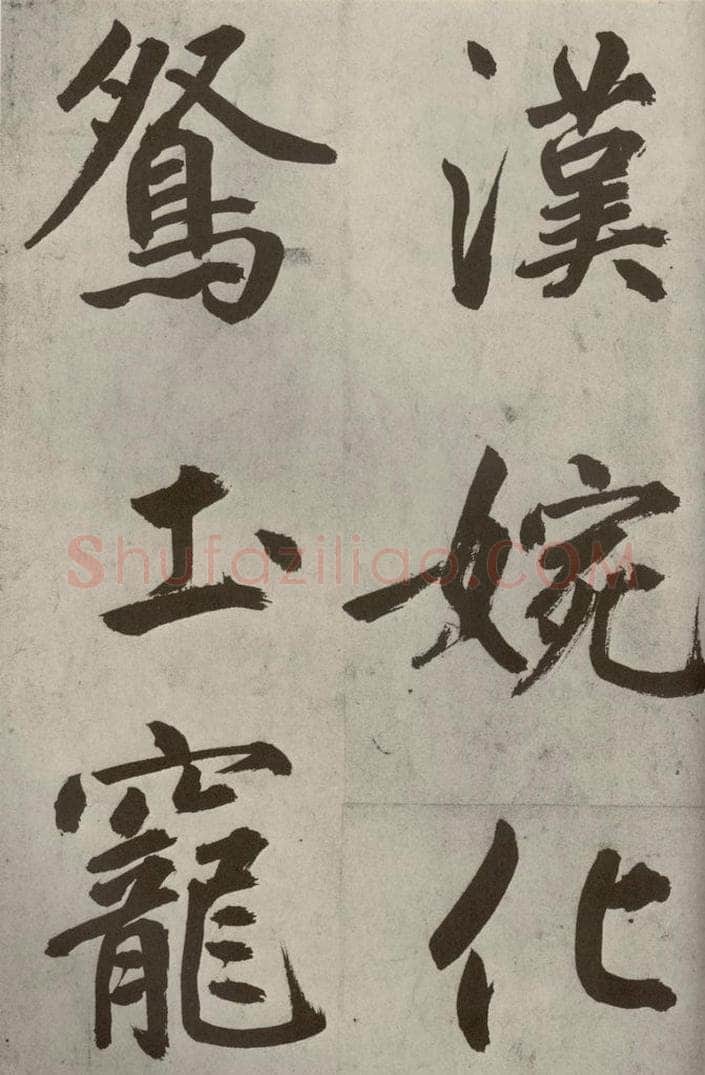 漢婉化
鴛土寵
Shufaziliao.COM